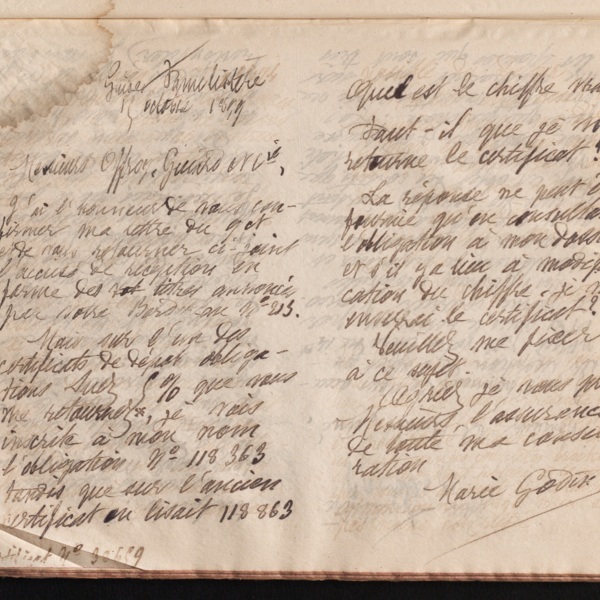 Guise Familistère
15 octobre 1899
Messieurs Offroy, Guiard & Cie,
J'ai l'honneur de vous con-
firmer ma lettre du 9 ct
et de vous retourner ci-joint
l'accusé de réception en
forme des titres annoncés
par votre Bordereau No 213.
Mais sur l'un des
certificats de dépôt obliga-
tions Suez 5 % que vous
me retournez, je vois
inscrite à mon nom
l'obligation No 118 363
tandis que sur l'ancien
certificat on lisait 118 863
certificat No 30.659
Quel est le chiffre
Faut-il que je
retourne le certificat?
La réponse ne peut
fournie qu'en consultant
l'obligation à mon
et s'il y a lieu à modifi-
cation du chiffre, je
le certificat?
Veuillez me fixer
à ce sujet.
Agréez, je vous
Messieurs, l'assurance
de toute ma considé-
ration
Marie Godin